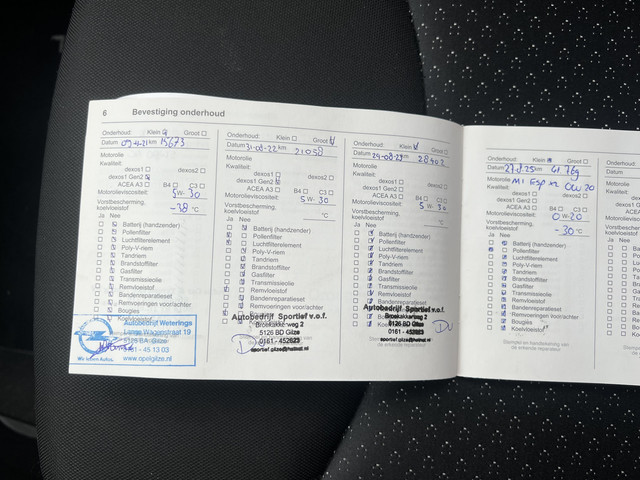 6 Bevestiging onderhoud
Onderhoud: Klein Groot
Datum 09-4-21 km 15673
Motorolie
Kwaliteit:
dexos1 dexos2
dexos1 Gen2
ACEA A3 B4 C3
Motorolieviscositeit: 5 W- 30
Vorstbescherming,
koelvloeistof -38 °C
Ja Nee
Batterij (handzender)
Pollenfilter
Luchtfilterelement
Poly-V-riem
Tandriem
Brandstoffilter
Gasfilter
Transmissieolie
Remvloeistof
Bandenreparatieset
Remvoeringen voor/achter
Bougies
Koelvloeistof
Autobedrijf Weterings
Lange Wagenstraat 19
5126 BA, Gilze
0161 - 45 13 03
Wij leven Autos.
www.opelgilze.nl
Onderhoud: Klein Groot
Datum 31-08-22 km 21058
Motorolie
Kwaliteit:
dexos1 dexos2
dexos1 Gen2
ACEA A3 B4 C3
Motorolieviscositeit: 5 W- 30
Vorstbescherming,
koelvloeistof °C
Ja Nee
Batterij (handzender)
Pollenfilter
Luchtfilterelement
Poly-V-riem
Tandriem
Brandstoffilter
Gasfilter
Transmissieolie
Remvloeistof
Bandenreparatieset
Remvoeringen voor/achter
Autobedrijf Sportief v.o.f.
Broekakkerweg 2
5126 BD Gilze
0161 - 452823
Onderhoud: Klein Groot
Datum km 28502
Motorolie
Kwaliteit:
dexos1 dexos2
dexos1 Gen2
ACEA A3 B4 C3
Motorolieviscositeit: 5 W- 30
Vorstbescherming,
koelvloeistof °C
Ja Nee
Batterij (handzender)
Pollenfilter
Luchtfilterelement
Poly-V-riem
Tandriem
Brandstoffilter
Gasfilter
Transmissieolie
Remvloeistof
Bandenreparatieset
Remvoeringen voor/achter
Autobedrijf Sportief v.o.f.
5126 BD Gilze
0161 - 452823
Onderhoud: Klein Groot
Datum 27.8.25 km 41.769
Motorolie
Kwaliteit: M1 ESP x2 0W20
dexos1 dexos2
dexos1 Gen2
ACEA A3 B4 C3
Motorolieviscositeit: 0 W- 20
Vorstbescherming,
koelvloeistof -30 °C
Ja Nee
Batterij (handzender)
Pollenfilter
Luchtfilterelement
Poly-V-riem
Tandriem
Brandstoffilter
Gasfilter
Transmissieolie
Remvloeistof
Bandenreparatieset
Remvoeringen voor/achter
Bougies
Koelvloeistof
Stempel en handtekening van
de erkende reparateur